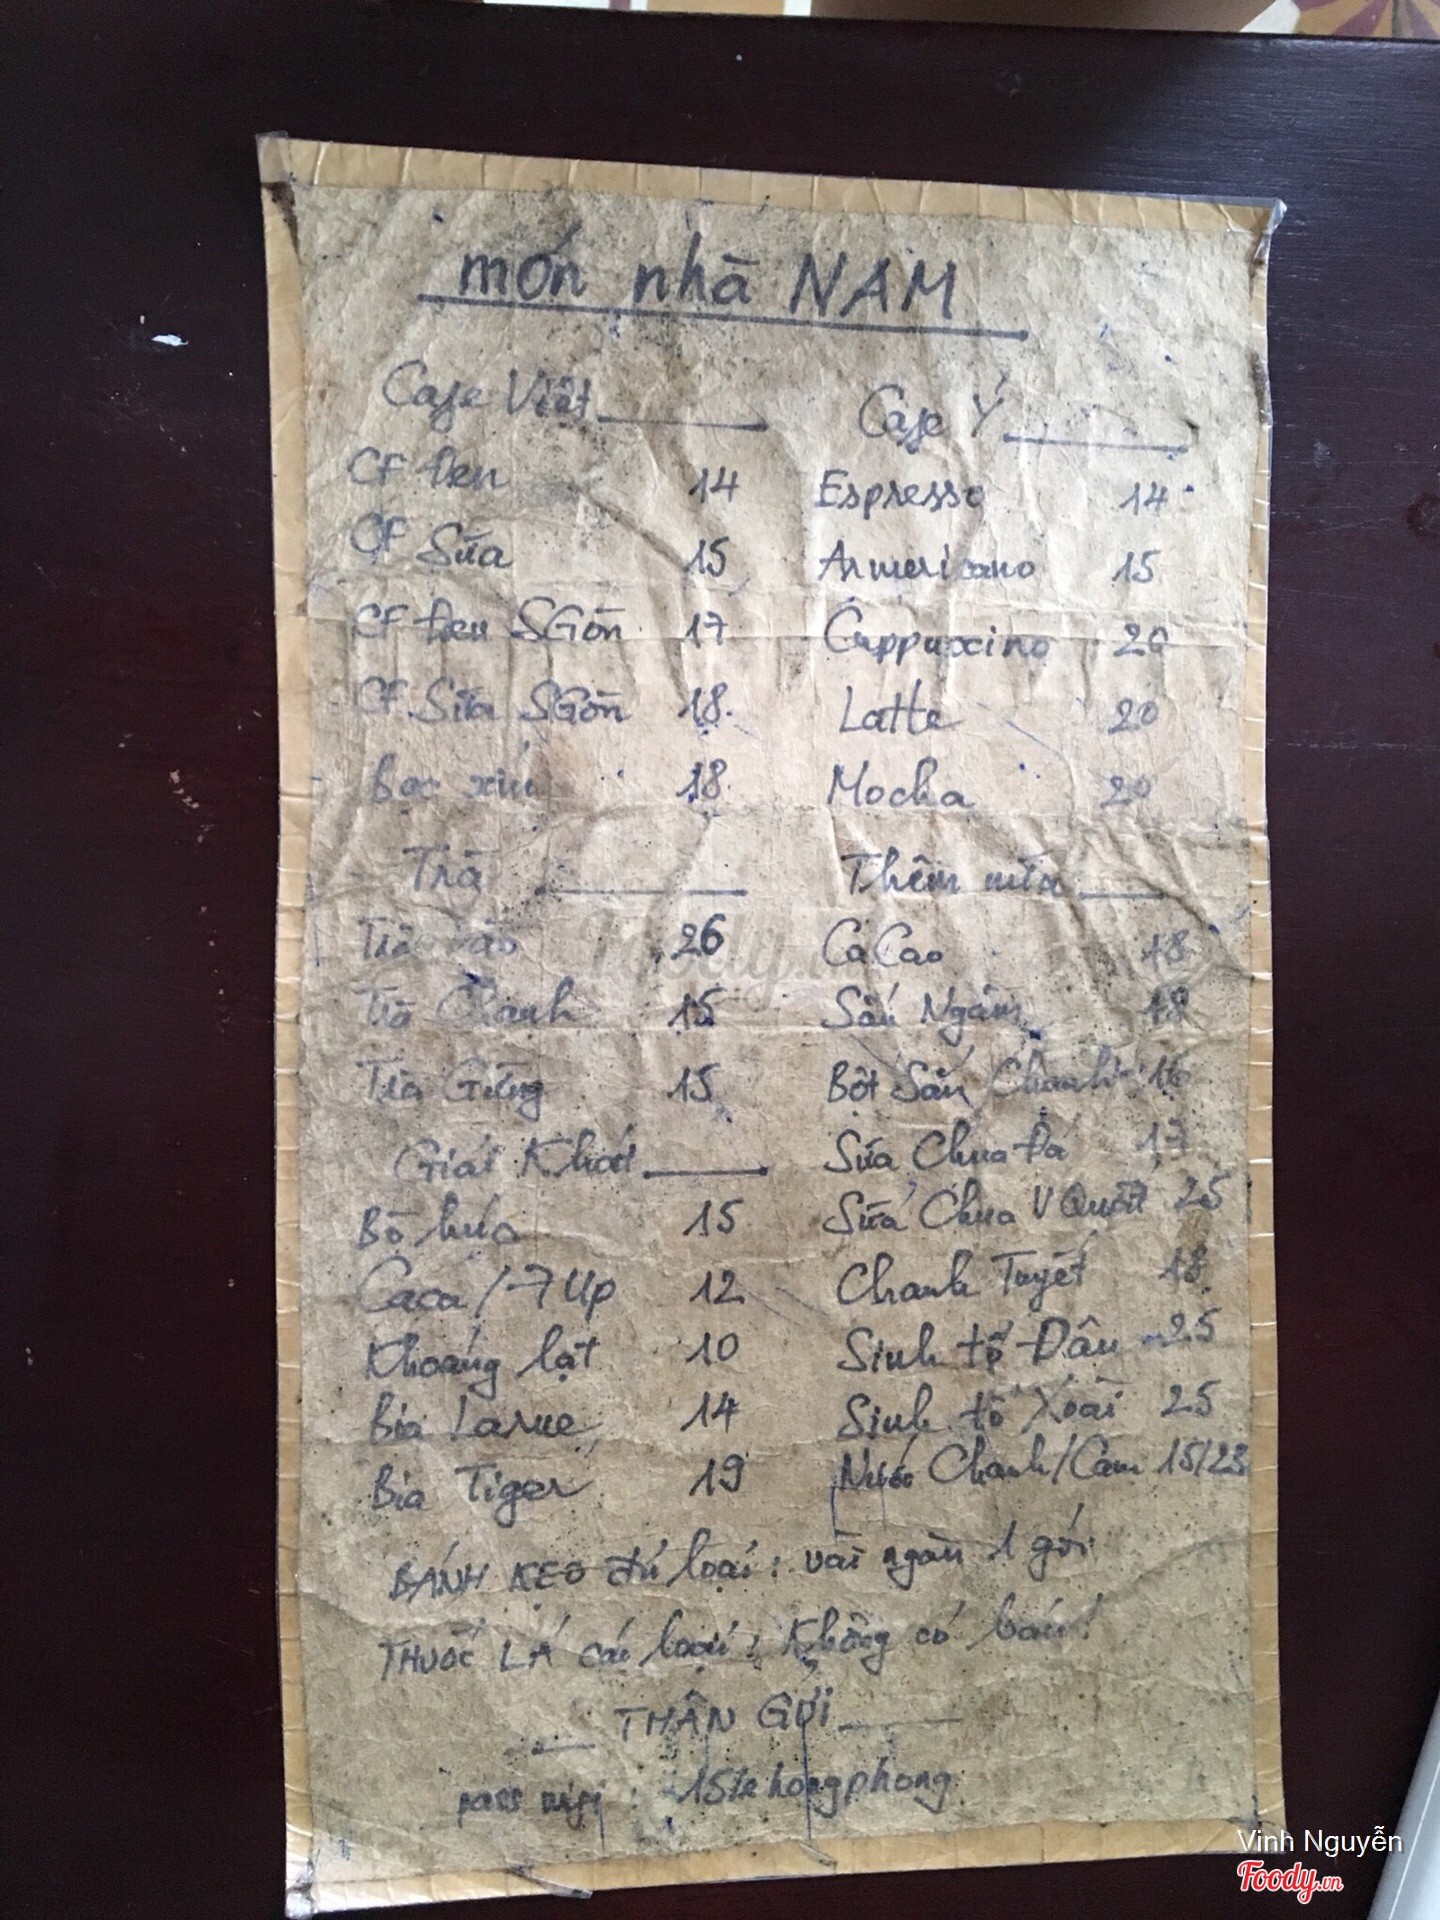 món nhà NAM
Cafe Việt
CF Đen 14
CF Sữa 15
CF Đen SGòn 17
CF Sữa SGòn 18
Bạc xỉu 18
Trà
Trà Đào 26
Trà Chanh 15
Trà Gừng 15
Giải Khát
Bò húc 15
Caca / 7 Up 12
Khoáng lạt 10
Bia Larue 14
Bia Tiger 19
Cafe Ý
Espresso 14
Armericano 15
Cappuxino 20
Latte 20
Mocha 20
Thêm nữa
Ca Cao 18
Sấu Ngâm 18
Bột Sắn Chanh 16
Sữa Chua Đá 17
Sữa Chua V Quốt 25
Chanh Tuyết 18
Sinh tố Dâu 25
Sinh tố Xoài 25
Nước Chanh/Cam 15/23
BÁNH KẸO đủ loại : vài ngàn 1 gói
THUỐC LÁ các loại : Không có bán!
THÂN GỬI
pass wifi : 15lehongphong
Vinh Nguyễn
Foody.vn